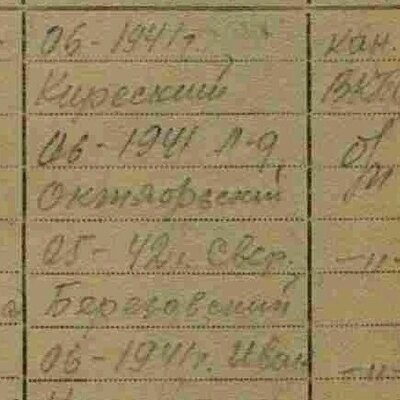 06-1941г. кан.
Киреский ВКП
06-1941 Л-д
Октябрьский
05-42г. Свер. -"-
Березовский
06-1941г. Иван -"-